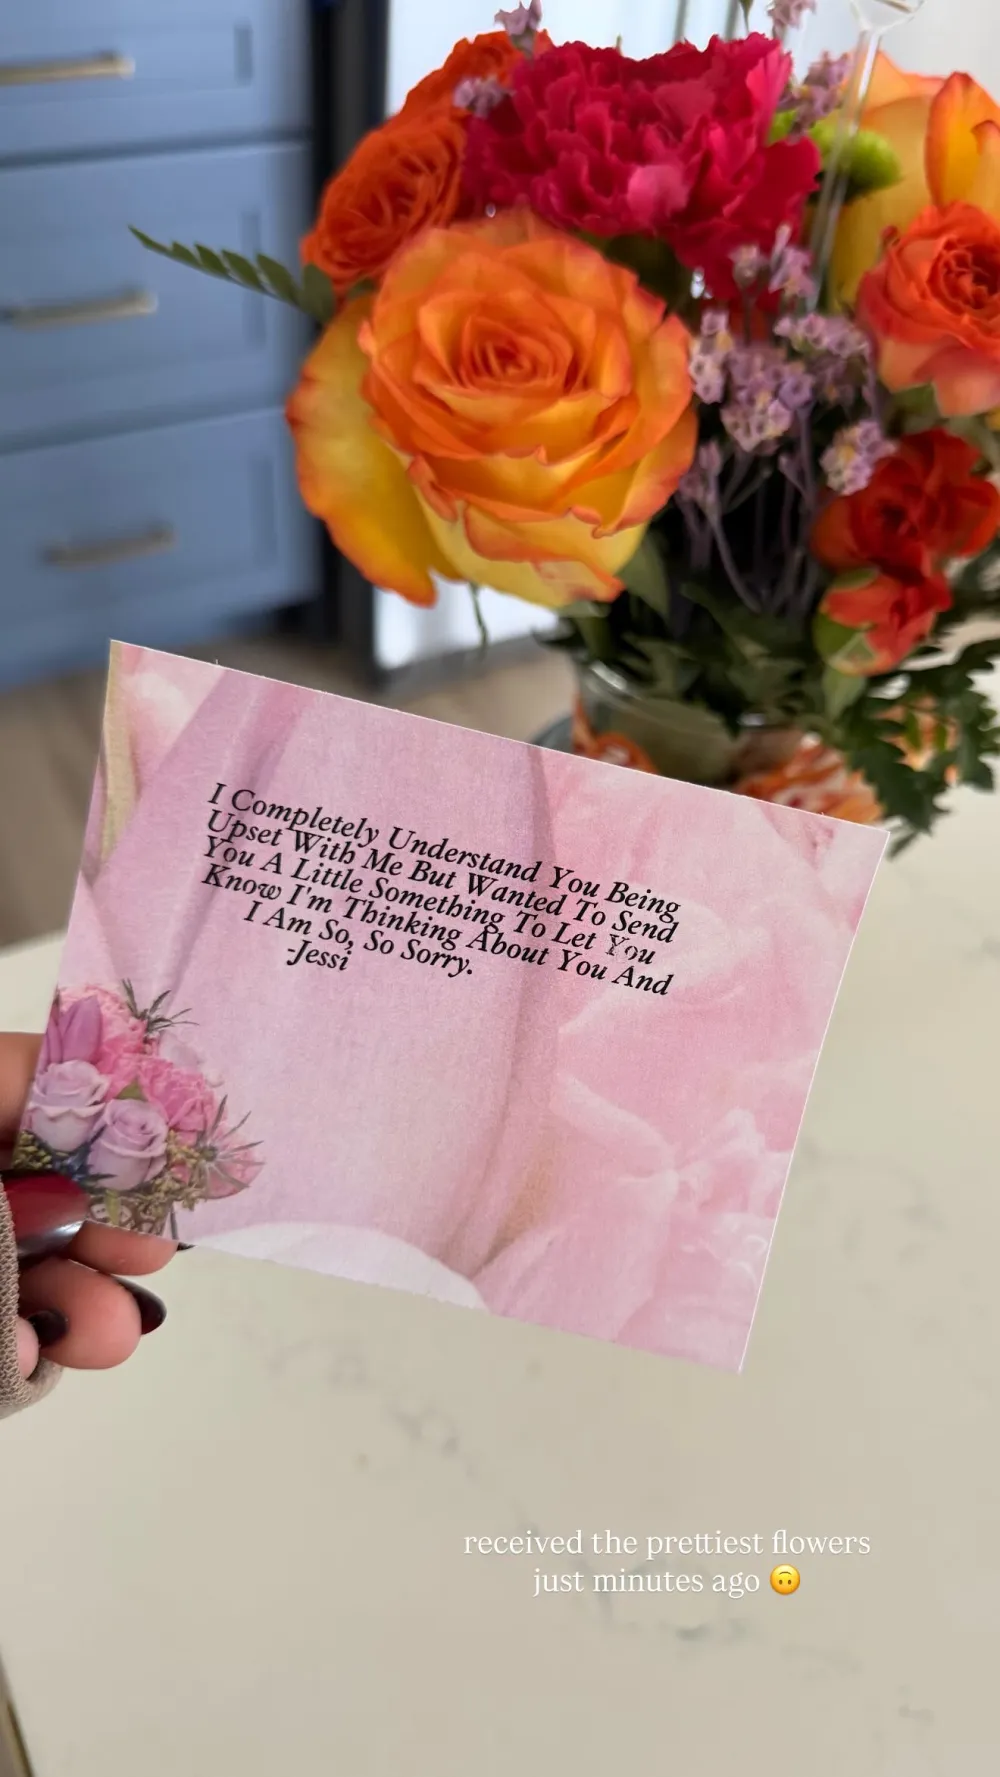 I Completely Understand You Being
Upset With Me But Wanted To Send
You A Little Something To Let You
Know I'm Thinking About You And
I Am So, So Sorry.
-Jessi
received the prettiest flowers
just minutes ago 🙃